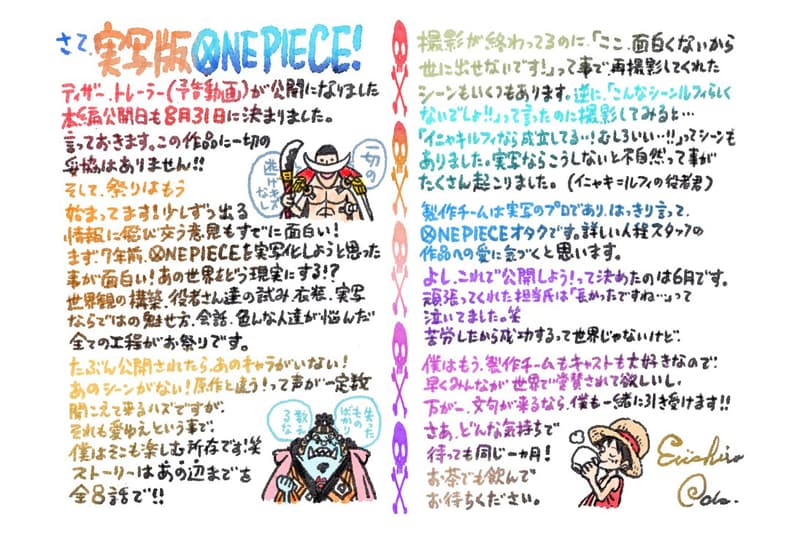 さて、実写版ONE PIECE!
ティザー.トレーラー(予告動画)が公開になりました
本編公開日も8月31日に決まりました。
言っておきます。この作品に一切の
妥協はありません!!
一切の
逃げキズなし
そして、祭りはもう
始まってます!少しずつ出る
情報に飛び交う意見もすでに面白い!
まず、7年前、ONE PIECEを実写化しようと思った
事が面白い!あの世界をどう現実にする!?
世界観の構築、役者さん達の試み、衣装、実写
ならではの魅せ方、会話、色んな人達が悩んだ
全ての工程がお祭りです。
たぶん公開されたら、あのキャラがいない!
あのシーンがない!原作と違う!って声が一定数
聞こえて来るハズですが、
それも愛ゆえという事で、
僕はそこも楽しむ所存です!笑
ストーリーはあの辺までを
全8話で!!
失った
ものばかり
数えるな
撮影が終わってるのに、「ここ、面白くないから
世に出せないです!」って事で、再撮影してくれた
シーンもいくつもあります。逆に、「こんなシーンルフィらしく
ないでしょ!!」って言ったのに撮影してみると…
「イニャキルフィなら成立してる…!むしろいい…!!」ってシーンも
ありました。実写ならこうしないと不自然って事が
たくさん起こりました。(イニャキ=ルフィの役者君)
製作チームは実写のプロであり、はっきり言って、
ONE PIECEオタクです。詳しい人程スタッフの
作品への愛に気づくと思います。
よし、これで公開しよう!って決めたのは6月です。
頑張ってくれた担当氏は「長かったですね…」って
泣いてました。笑
苦労したから成功するって世界じゃないけど、
僕はもう、製作チームもキャストも大好きなので、
早くみんなが世界で愛賛されて欲しいし、
万が一、文句が来るなら、僕も一緒に引き受けます!!
さあ、どんな気持ちで
待っても同じ一ヵ月!
お茶でも飲んで
お待ちください。
Eiichiro
Oda.